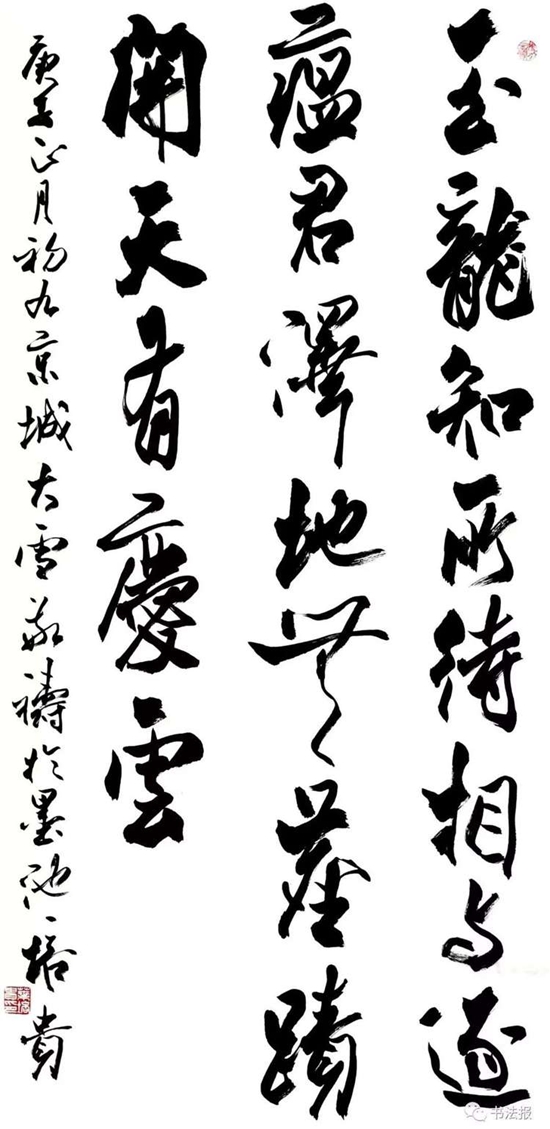 玉龍知所待相与逐
瘟君澤地無塵蹟
開天有慶雲
庚子正月初九京城大雪敬禱於墨池培貴
书法报